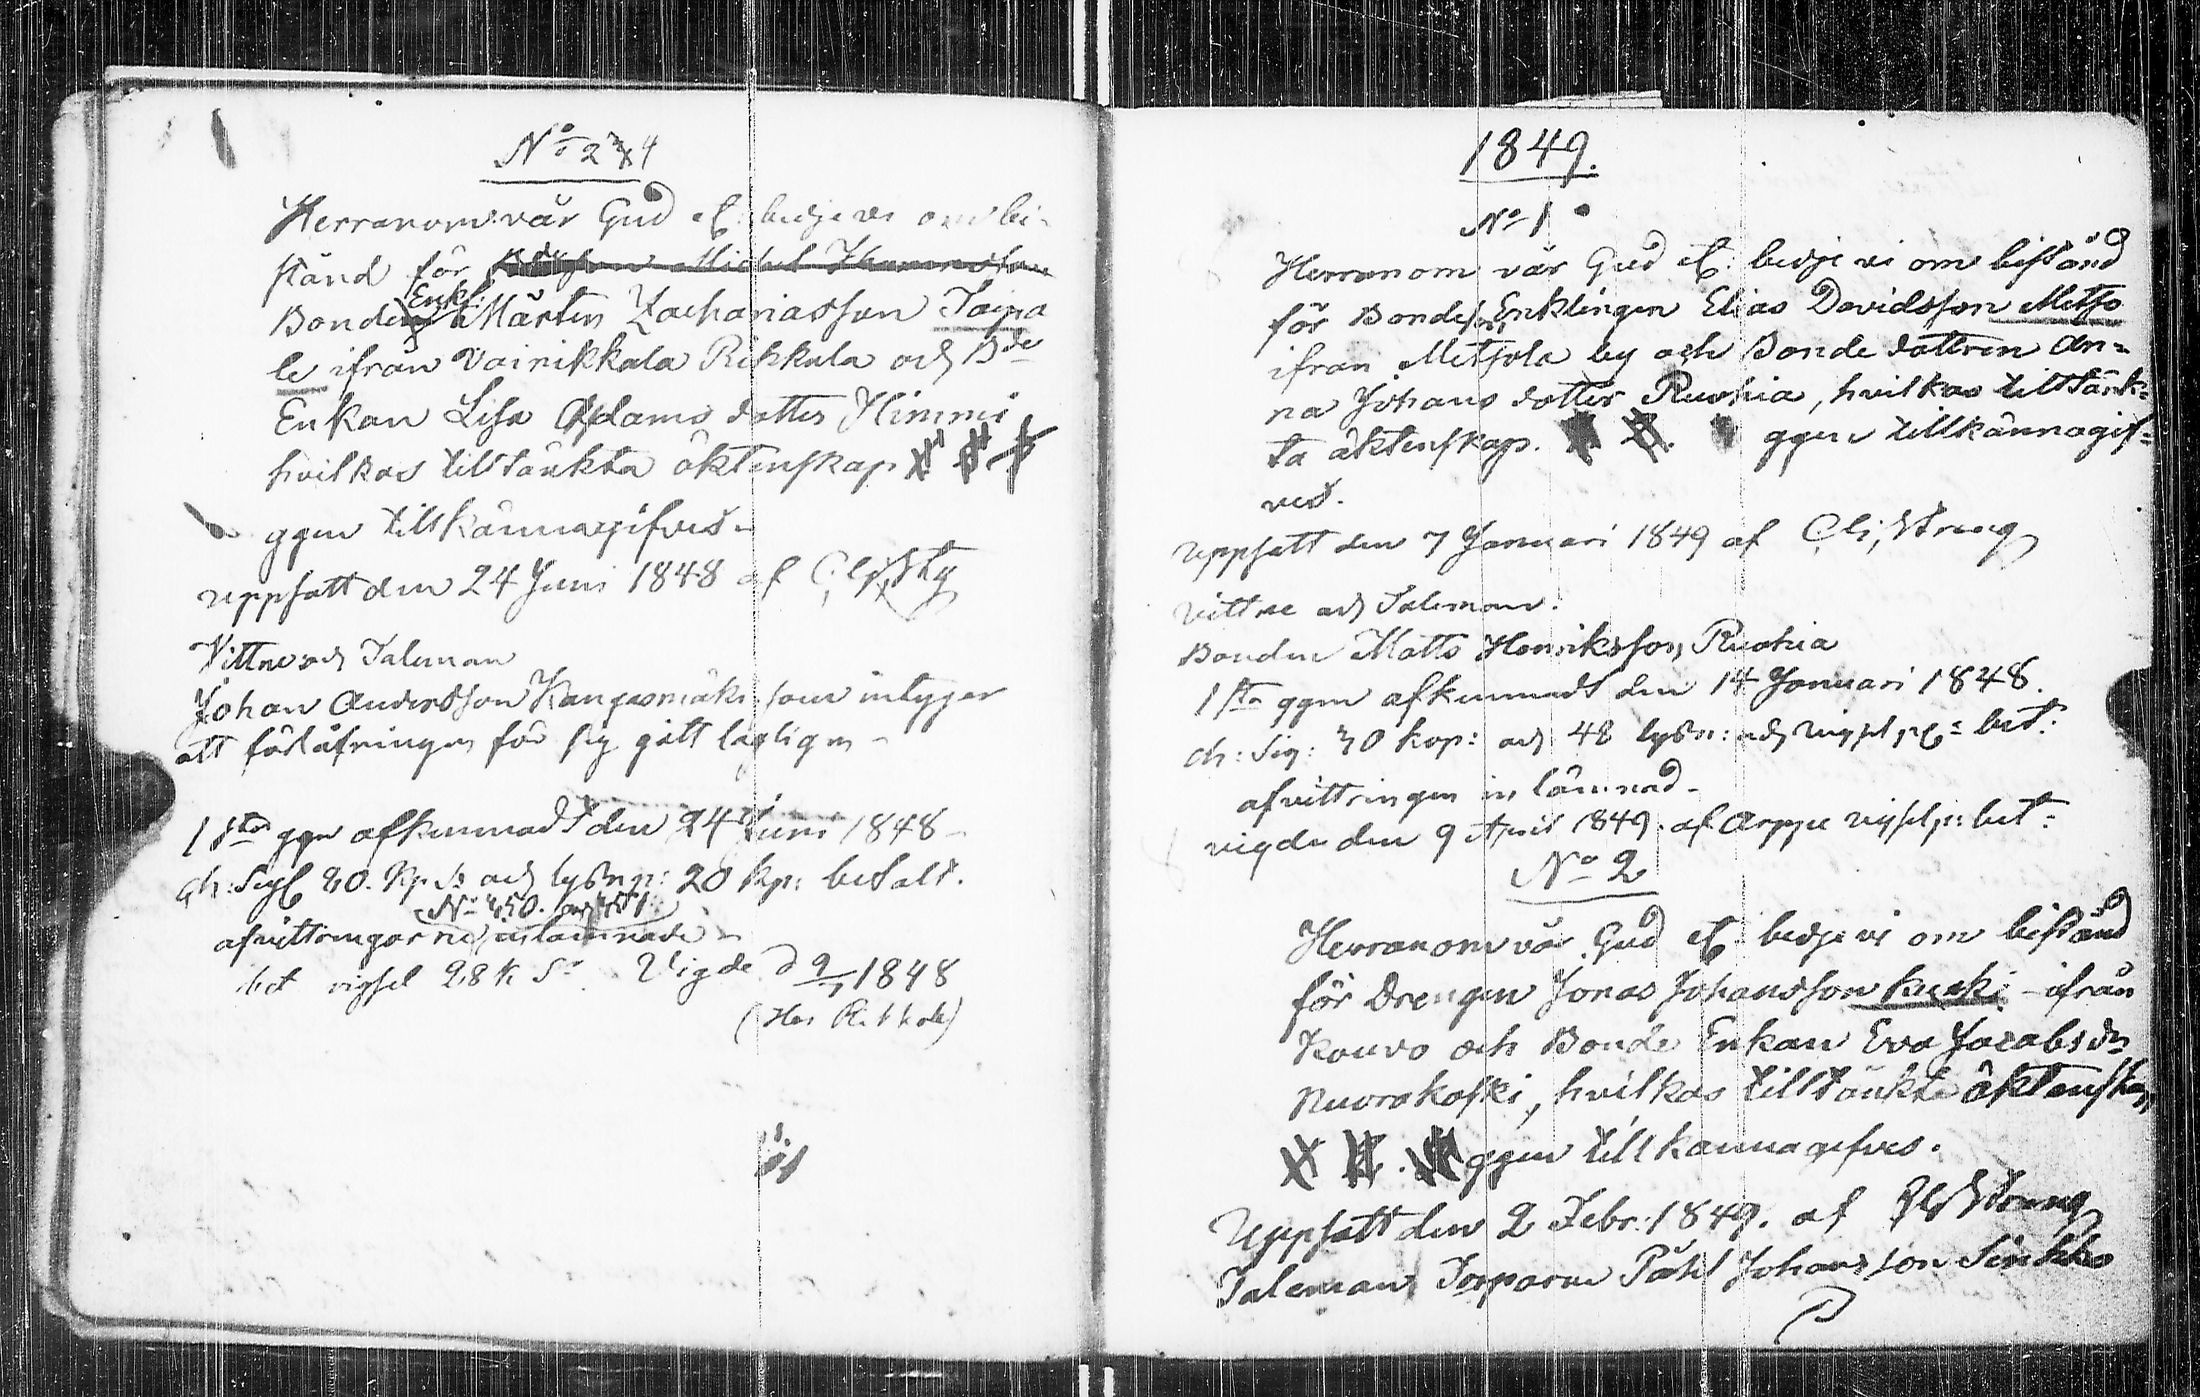 No 24
Herranom vår Gud etc: bedje vi om bi-
stånd för
Enkl:
Bonden Mårten Zachariasson Taipa
le ifrån Vainikkala Rikkula och Bde
Enkan Lisa Adams dotter Himmi
hvilkas tilltänkta äktenskap
ggen tillkännagifves.
uppsatt den 24 Juni 1848 af
Vittne och Taleman
Johan Andersson Kangasmäki som intygar
att förlofningen för sig gått lagligen.
1sta ggn afkunnadt den 24 Juni 1848.
20 kp: betalt.
afvittringarne inlämnade
bet vigsel 28 k Sr. Vigde d 9/7 1848
1849.
No 1
Herranom vår Gud etc: bedje vi om bistånd
för Bondes. Enklingen Elias Davidsson Metso
ifrån Metsola by och Bonde dottren An-
na Johans dotter Ruohia, hvilkas tilltänk-
ta äktenskap. ggen tillkännagif-
ves.
uppsatt den 7 Januari 1849 af Streng
vittne och Taleman:
Bonden Matts Henriksson Ruohia
1sta ggn afkunnadt den 14 Januari 1848.
ch: Sig: 30 kop: och 48 lysn: och vigsl pg: bet:
afvittringen in lämnad.
vigde den 9 April 1849. af Arppe vigselp: bet:
No 2
Herranom vår Gud etc: bedje vi om bistånd
för Drengen Jonas Johansson Kuski ifrån
Kouvo och Bonde Enkan Eva Jacobs dr
Nuorakoski, hvilkas tilltänkta äktenskap
ggen tillkännagifves.
Uppsatt den 2 Febr: 1849. af Streng
Taleman Torparen Påhl Johansson Sinkko